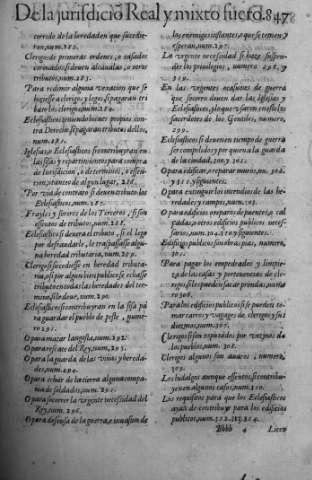 De la jurisdiciō Real y mixto fuero. 847
correlo de la heredad en que sucedie-
ron, num. 282.
Clerigos de primeras ordenes, o casados
tributos, num. 283.
Para redimir alguna vexacion que se
hiziesse a clerigos y legos, si pagaran tri
buto los clerigos, num. 284.
Eclesiasticos teniendo bienes propios con-
tra Derecho si pagaran tributos dellos,
num. 285.
Iglesias, o Eclesiasticos si contribuyran en
las sisas y repartimientos para compra
de Iurisdicion, o de terminos, o essen-
cion, o tanteo de algun lugar, 286.
Por via de contrato si deuen tributo los
Eclesiasticos, num. 287.
Frayles y sorores de los Terceros, si son
essentos de tributos, num. 288.
Eclesiastico si deuera el tributo, si el lego
por defraudarle, le traspassasse algu-
na heredad tributaria, num. 289.
Clerigo si sucediesse en heredad tributa-
ria, o si por algun bien publico se echasse
tributo en todas las heredades del ter-
mino, si le deue, num. 290.
Eclesiastico si contribuyra en la sisa pa
ra guardar el pueblo de peste, nume-
ro 291.
O para matar langosta, num. 292.
O para rescate del Rey, num. 293.
O para la guarda de las viñas y hereda-
des, num. 294.
O para echar de la tierra alguna compa-
ñia de soldados, num. 295.
O para socorrer la vrgente necessidad del
Rey, num. 296.
O para defensa de la guerra, o inuasion de
los enemigos infieles, o que se temen y
esperan, num. 297.
La vrgente necessidad se haze suspen-
der los priuilegios, numero 298. y
En las vrgentes ocasiones de guerra
que socorro deuen dar las Iglesias y
Eclesiasticos, y lo que vsaron en ellas los
sacerdotes de los Gentiles, numero
299.
Eclesiasticos si deuen en tiempo de guerra
ser compelidos y por quien a la guarda
de la ciudad, 300. y 301.
O para edificar, o reparar muros, nu. 302.
y 315. y siguientes.
O para extinguir los incendios de las he-
redades y campos, num. 303.
O para edificios o reparos de puentes, o cal
çadas, o otros edificios publicos neces-
sarios, num. 304. 310. y siguientes.
Edificios publicos, son obras pias, numero,
305.
Para pagar los empedrados y limpie-
za de las casas y pertenencias de cle-
rigos, si les pueden sacar prendas, num.
306.
Para los edificios publicos si se pueden to-
mar carros y vagages de clerigos y sus
diezmos, num. 307.
Clerigos si son reputados por vezinos de
los pueblos, num. 308.
Clerigos algunos son auaros, numero,
309.
Los hidalgos aunque essentos, si contribu-
yen en algunos casos, num. 310.
Los requisitos para que los Eclesiasticos
ayan de contribuyr para los edificios
publicos, num. 312. 313. 314.
Bbbb 4 Licen